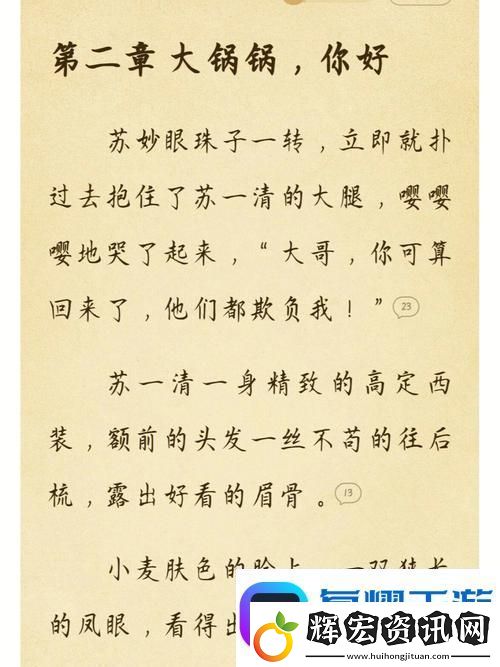 第二章 大锅锅，你好
苏妙眼珠子一转，立即就扑
过去抱住了苏一清的大腿，嘤嘤
嘤地哭了起来，“大哥，你可算
回来了，他们都欺负我！” 23
苏一清一身精致的高定西
装，额前的头发一丝不苟的往后
梳，露出好看的眉骨。 13
小麦肤色的脸上，一双狭长
的凤眼，看得出
辉宏资讯网
www.huihongjituan.com